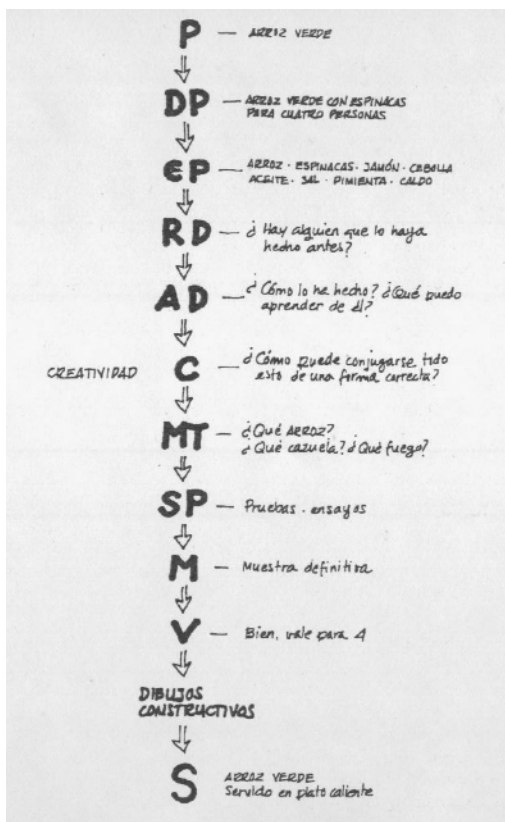 P — ARROZ VERDE
DP — ARROZ VERDE CON ESPINACAS
PARA CUATRO PERSONAS
EP — ARROZ · ESPINACAS · JAMÓN · CEBOLLA
ACEITE · SAL · PIMIENTA · CALDO
RD — ¿Hay alguien que lo haya
hecho antes?
AD — ¿Cómo lo ha hecho? ¿Qué puedo
aprender de él?
CREATIVIDAD C — ¿Cómo puede conjugarse todo
esto de una forma correcta?
MT — ¿Qué ARROZ?
¿Qué cazuela? ¿Qué fuego?
SP — Pruebas · ensayos
M — Muestra definitiva
V — Bien, vale para 4
DIBUJOS
CONSTRUCTIVOS
S ARROZ VERDE
Servido en plato caliente